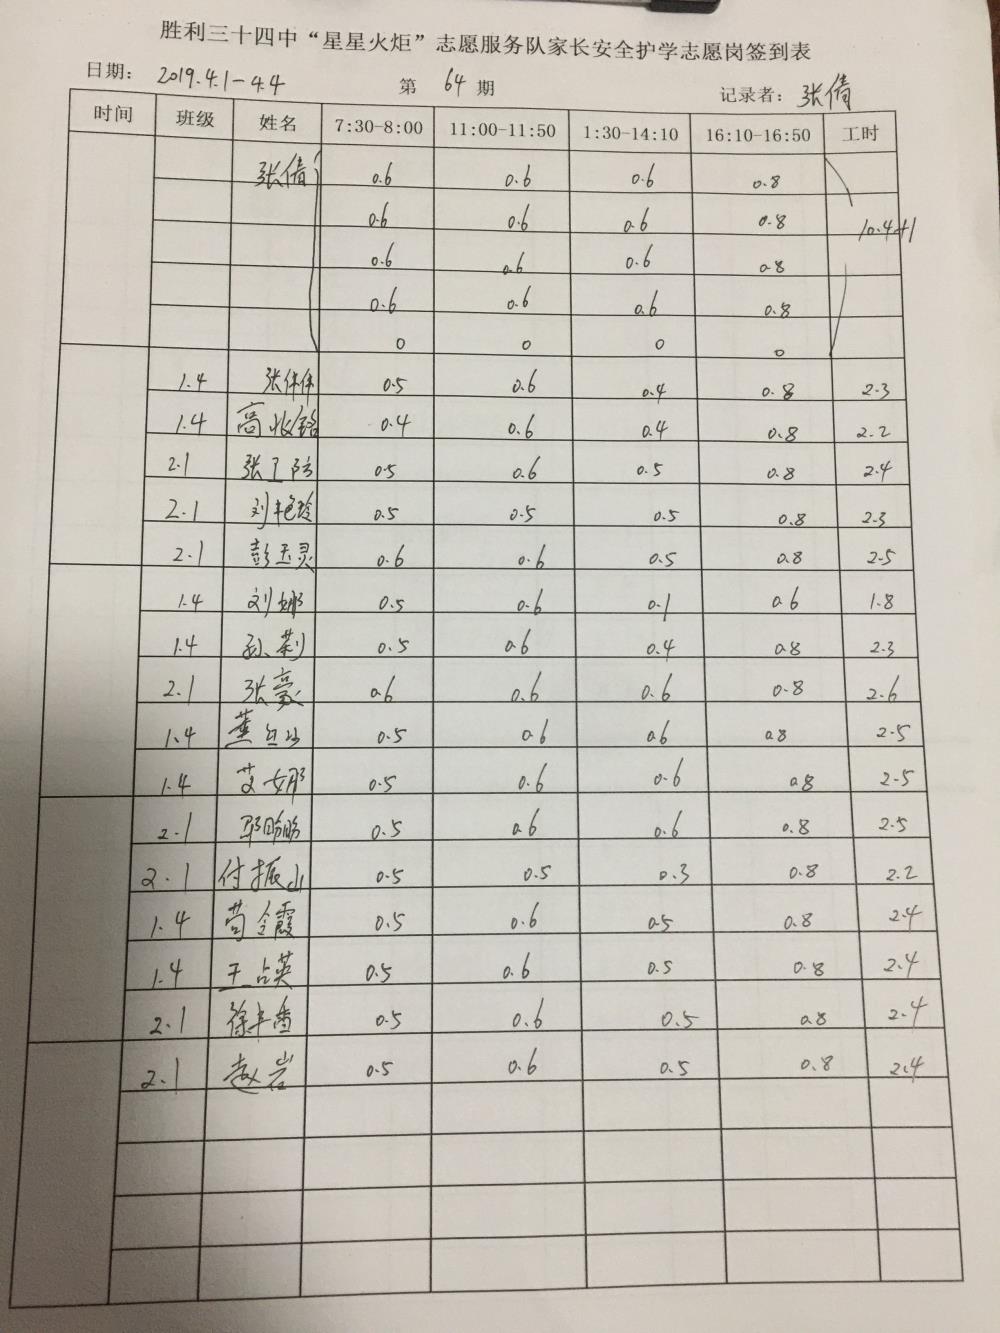 胜利三十四中“星星火炬”志愿服务队家长安全护学志愿岗签到表
日期: 2019.4.1-4.4 第 64 期 记录者: 张倩
时间 班级 姓名 7:30-8:00 11:00-11:50 1:30-14:10 16:10-16:50 工时
张倩 0.6 0.6 0.6 0.8
0.6 0.6 0.6 0.8 10.4+1
0.6 0.6 0.6 0.8
0.6 0.6 0.6 0.8
0 0 0 0
1.4 张伟伟 0.5 0.6 0.4 0.8 2.3
1.4 高 0.4 0.6 0.4 0.8 2.2
2.1 张卫防 0.5 0.6 0.5 0.8 2.4
2.1 刘艳玲 0.5 0.5 0.5 0.8 2.3
2.1 彭玉灵 0.6 0.6 0.5 0.8 2.5
1.4 刘娜 0.5 0.6 0.1 0.6 1.8
1.4 孙莉 0.5 0.6 0.4 0.8 2.3
2.1 张豪 0.6 0.6 0.6 0.8 2.6
1.4 0.5 0.6 0.6 0.8 2.5
1.4 艾娜 0.5 0.6 0.6 0.8 2.5
2.1 0.5 0.6 0.6 0.8 2.5
2.1 付振山 0.5 0.5 0.3 0.8 2.2
1.4 苟令霞 0.5 0.6 0.5 0.8 2.4
1.4 王占英 0.5 0.6 0.5 0.8 2.4
2.1 徐丰香 0.5 0.6 0.5 0.8 2.4
2.1 赵岩 0.5 0.6 0.5 0.8 2.4